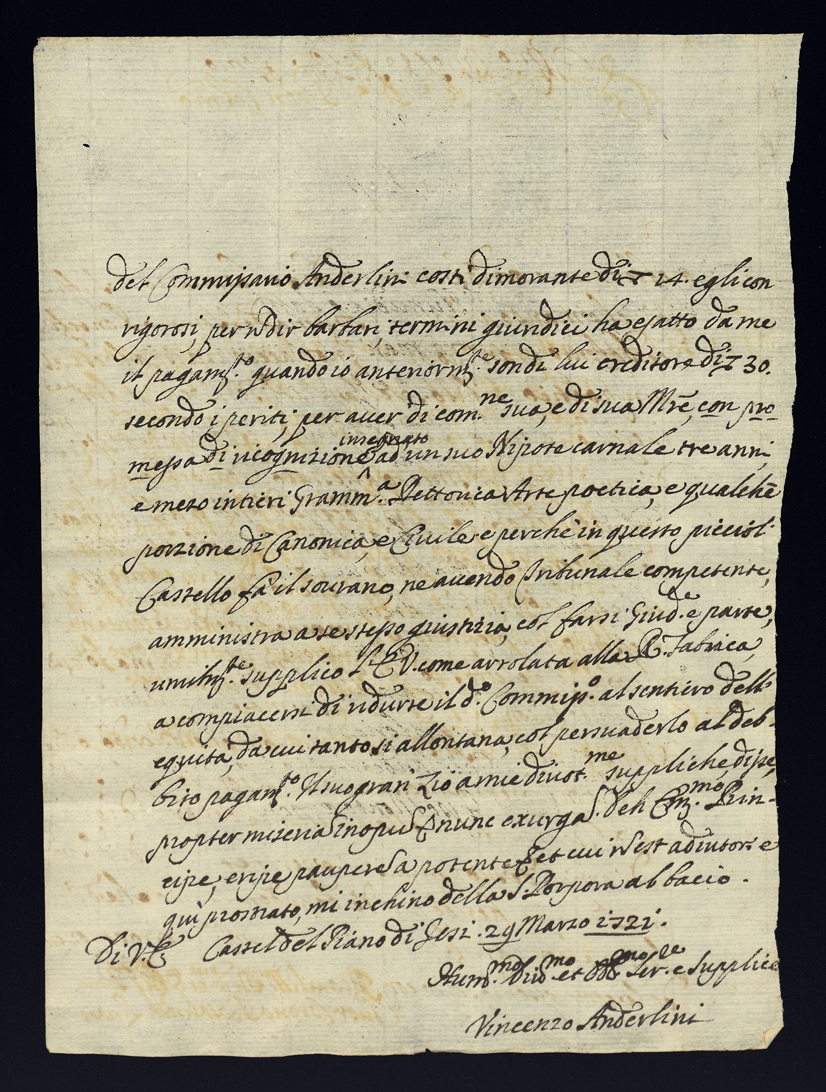 del Commissario Anderlini costì dimorante di 14. egli con
rigorosi, per nō dir barbari termini giuridici ha esatto da me
il pagam.to quando io anteriorm.te son di lui creditore di 30.
secondo i periti, per aver di com.ne sua, e di sua Mrē, con pro-
messa di ricognizione insegnato ad un suo Nipote carnale tre anni
e mezo intieri Gramm.a Rettorica Arte poetica, e qualche
porzione di Canonica, e Civile e perchè in questo picciol
Castello fà il sovrano, ne avendo Tribunale competente,
amministra a se stesso giustizia, col farsi Giud.e e parte,
umilm.te supplico l'E.V. come arrolata alla R. Fabrica,
a compiacersi di ridurre il d.o Commiss.o al sentiero dell'
equità, da cui tanto si allontana, col persuaderlo al deb-
bito pagam.to Il suo gran Zio a mie divot.me suppliche, disse,
propter miseriā inopū nunc exurgā. Deh Em.mo Prin-
cipe, eripe pauperē a potente et cui nō est adiutor: e
qui prostrato, mi inchino della S. Porpora al bacio.
Di V.E. Castel del Piano di Jesi. 29 Marzo 1721.
Hum.mo Div.mo et Obb.mo Ser.re e Supplice
Vincenzo Anderlini